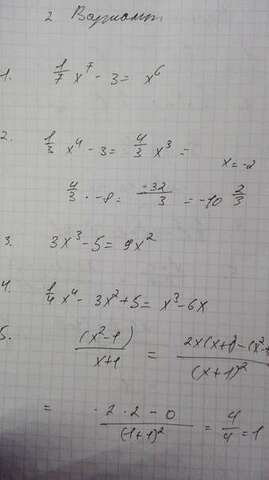 2 Вариант.
1. 1/7 x^7 - 3 = x^6
2. 1/3 x^4 - 3 = 4/3 x^3 =
x = -2
4/3 · -8 = -32/3 = -10 2/3
3. 3x^3 - 5 = 9x^2
4. 1/4 x^4 - 3x^2 + 5 = x^3 - 6x
5. (x^2-1)/(x+1) = 2x(x+1)-(x^2/(x+1)^2
= 2·2-0/(1+1)^2 = 4/4 = 1